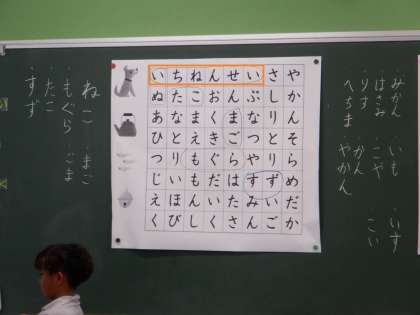 みかん いも いす
はさみ こや こい
りす かん
へちま やかん
いちねんせいさや
ぬたこおんぶしか
あなまくまなりん
ひとえきごつとそ
つりもぐらやりら
じいもだはすずめ
えほんいたみいだ
くびしくさんごか
ねこ まご
もぐら ごま
たこ
すず